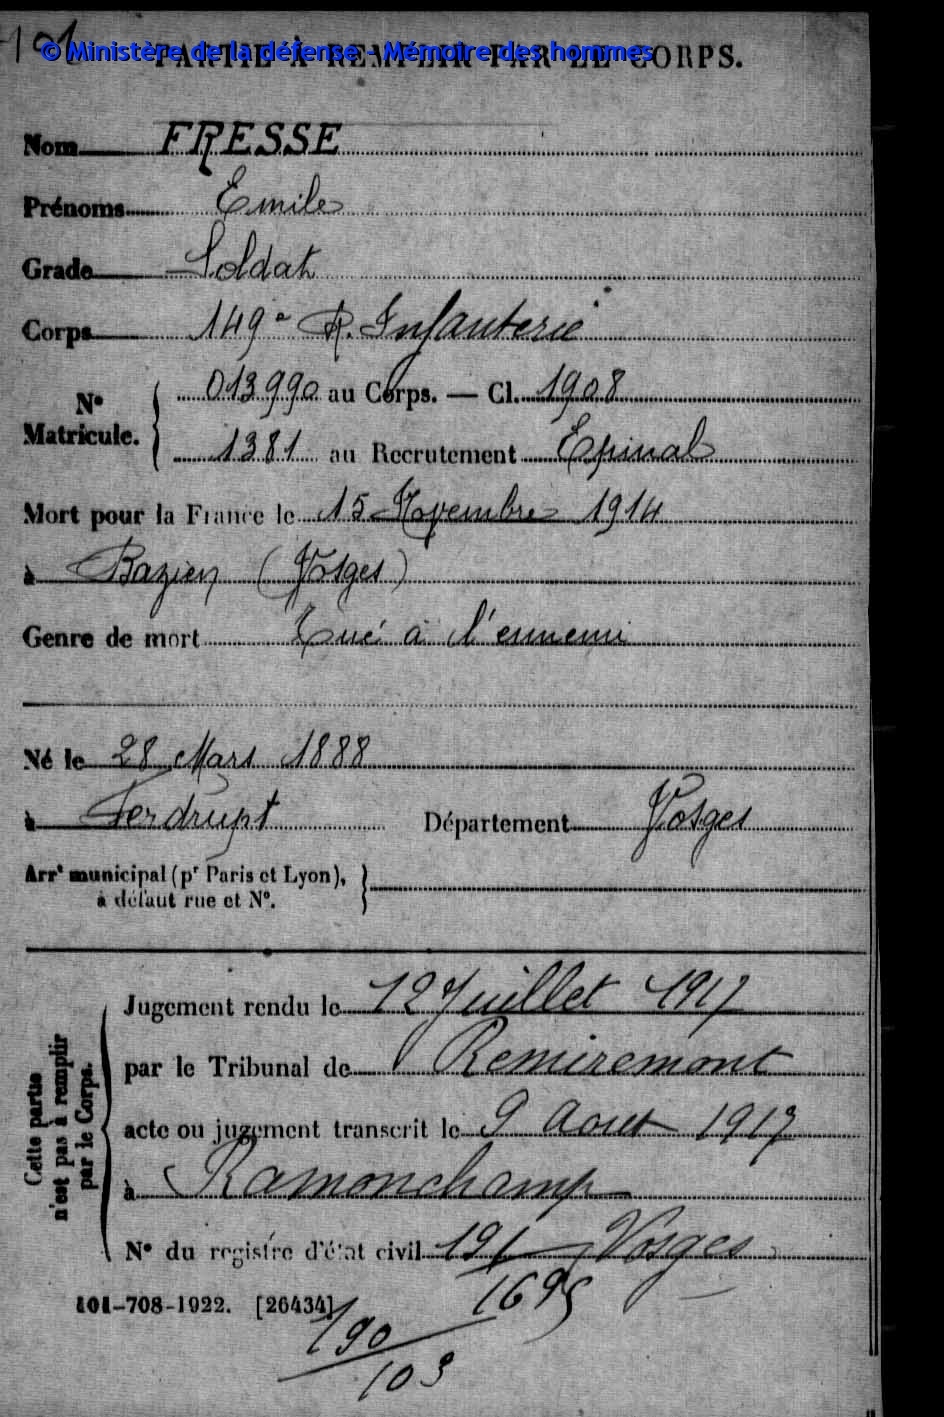 101
© Ministère de la défense - Mémoire des hommes
PARTIE À REMPLIR PAR LE CORPS.
Nom FRESSE
Prénoms Emile
Grade Soldat
Corps 149e R. Infanterie
N° Matricule. 013990 au Corps. — Cl. 1908
1381 au Recrutement Epinal
Mort pour la France le 15 Novembre 1914
à Bazien (Vosges)
Genre de mort Tué à l'ennemi
Né le 28 Mars 1888
à Ferdrupt Département Vosges
Arrt municipal (pr Paris et Lyon),
à défaut rue et N°.
Cette partie
n'est pas à remplir
par le Corps.
Jugement rendu le 12 Juillet 1917
par le Tribunal de Remiremont
acte ou jugement transcrit le 9 Aout 1917
à Ramonchamp
N° du registre d'état civil 191 Vosges
1695
101-708-1922. [26434]
190
103